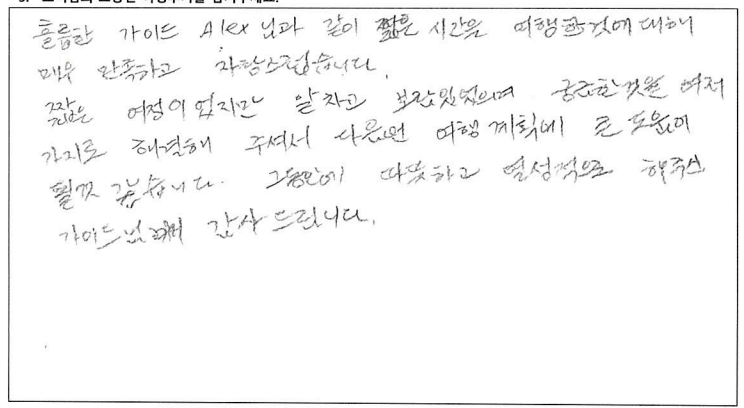 훌륭한 가이드 Alex 님과 같이 짧은 시간을 여행한것에 대해
매우 만족하고 자랑스럽습니다.
짧은 여정이었지만 알차고 보람있었으며 궁금한것을 여러
가지로 해결해 주셔서 다음번 여행 계획에 큰 도움이
될것 같습니다. 그동안에 따뜻하고 열성적으로 해주신
가이드님께 감사 드립니다.